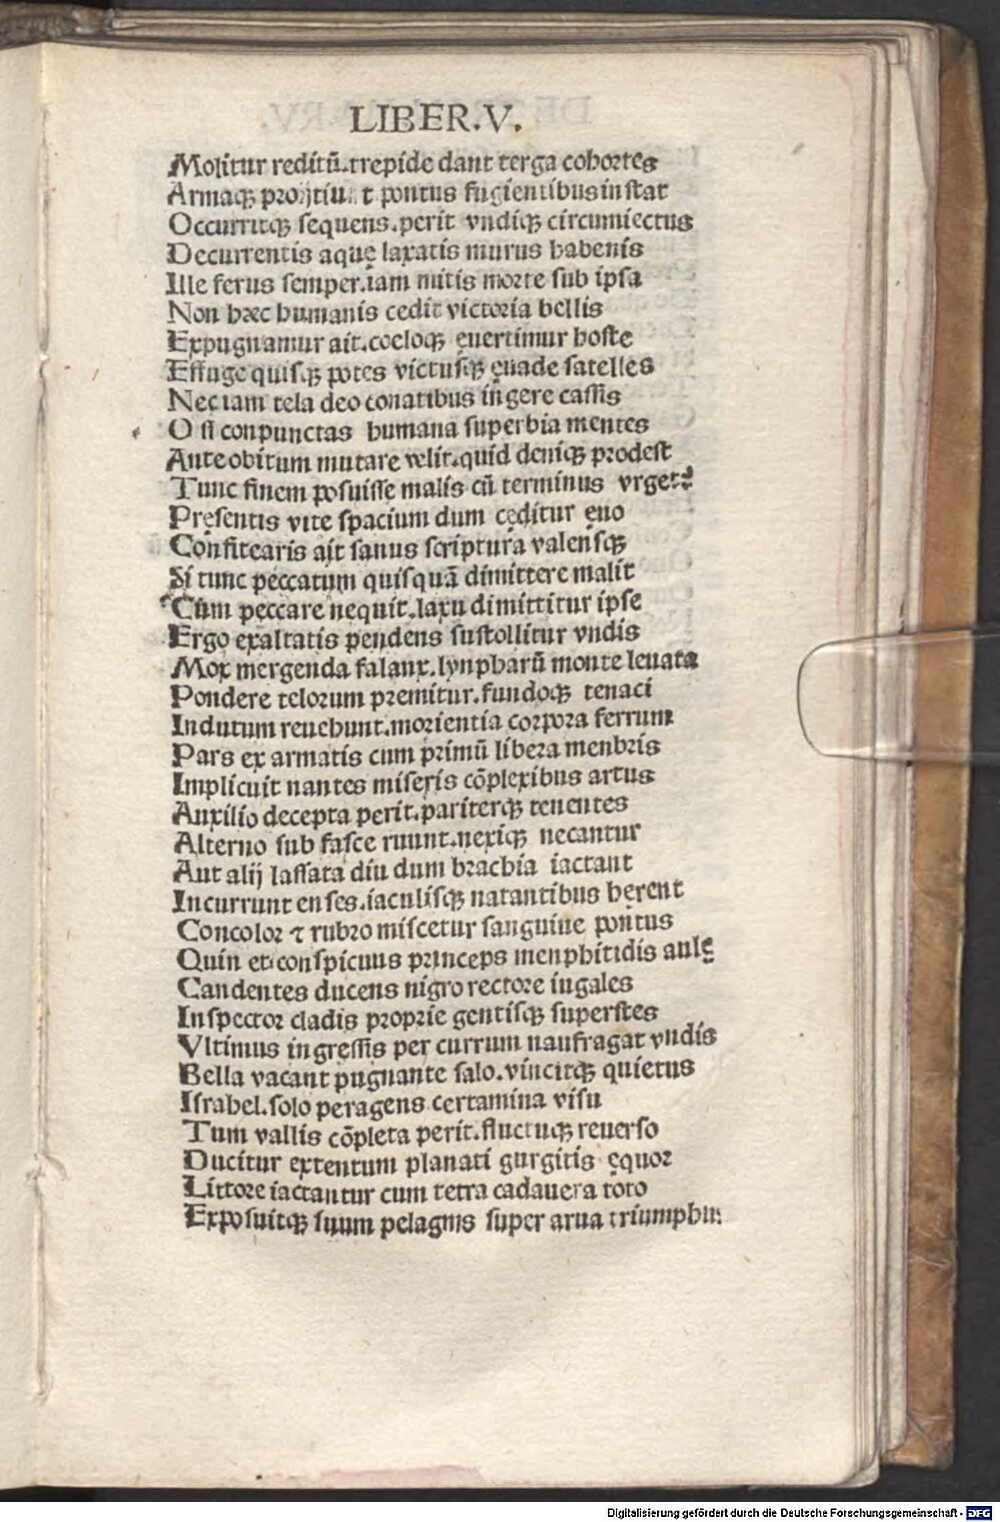 LIBER.V.
Molitur reditū.trepide dant terga cohortes
Armaqꝫ proijtiunt pontus fugientibus instat
Occurritqꝫ sequens.perit vndiqꝫ circumiectus
Decurrentis aquę laxatis murus habenis
Ille ferus semper.iam mitis morte sub ipsa
Non hæc humanis cedit victoria bellis
Expugnamur ait.coeloqꝫ euertimur hoste
Effuge quisqꝫ potes victusqꝫ euade satelles
Nec iam tela deo conatibus ingere cassis
O si conpunctas humana superbia mentes
Ante obitum mutare velit.quid deniqꝫ prodest
Tunc finem posuisse malis cū terminus vrget
Pręsentis vite spacium dum cęditur ęuo
Confitearis ait sanus scriptura valensqꝫ
Si tunc peccatum quisquā dimittere malit
Cum peccare nequit.laxu dimittitur ipse
Ergo exaltatis pendens sustollitur vndis
Mox mergenda falanx.lynpharū monte leuata
Pondere telorum premitur.fundoqꝫ tenaci
Indutum reuehunt.morientia corpora ferrum
Pars ex armatis cum primū libera menbris
Implicuit nantes miseris cōplexibus artus
Auxilio decepta perit.pariterqꝫ tenentes
Alterno sub fasce ruunt.nexiqꝫ necantur
Aut alij lassata diu dum brachia iactant
Incurrunt enses.iaculisqꝫ natantibus hęrent
Concolor ⁊ rubro miscetur sanguine pontus
Quin et conspicuus princeps menphitidis aulę
Candentes ducens nigro rectore iugales
Inspector cladis proprie gentisqꝫ superstes
Vltimus ingressis per currum naufragat vndis
Bella vacant pugnante salo.vincitqꝫ quietus
Israhel.solo peragens certamina visu
Tum vallis cōpleta perit.fluctuqꝫ reuerso
Ducitur extentum planati gurgitis ęquor
Littore iactantur cum tetra cadauera toto
Exposuitqꝫ suum pelagus super arua
Digitalisierung gefördert durch die Deutsche Forschungsgemeinschaft - DFG